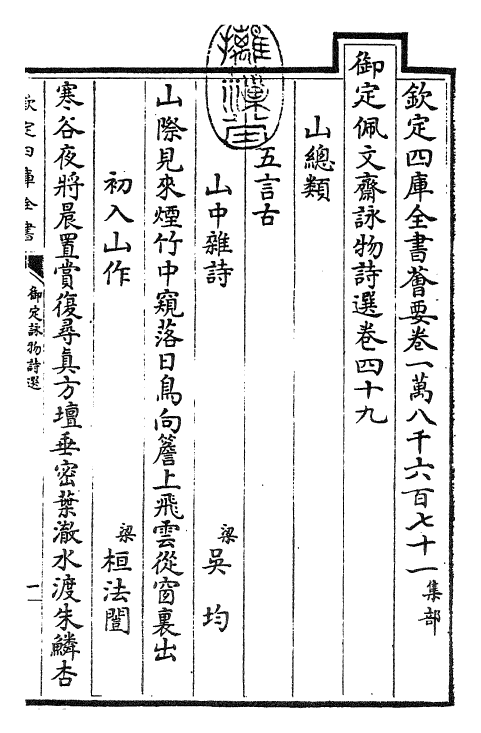 欽定四庫全書薈要卷一萬八千六百七十一 集部
御定佩文齋詠物詩選卷四十九
山總類
五言古
山中雜詩 梁 吳均
山際見來煙竹中窺落日鳥向簷上飛雲從窗裏出
初入山作 梁 桓法闓
寒谷夜將晨置賞復尋真方壇垂密葉澈水渡朱鱗杏
欽定四庫全書
御定詠物詩選
一